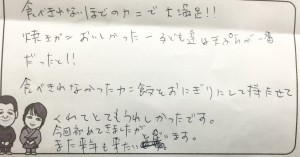 食べきれないほどのカニで大満足!!
焼きガニおいしかったー子ども達は天ぷらが一番
だったと!!
食べきれなかったカニ飯をおにぎりにして持たせて
くれてとてもうれしかったです。
今回初めてきましたが
また来年も来たいと思います。